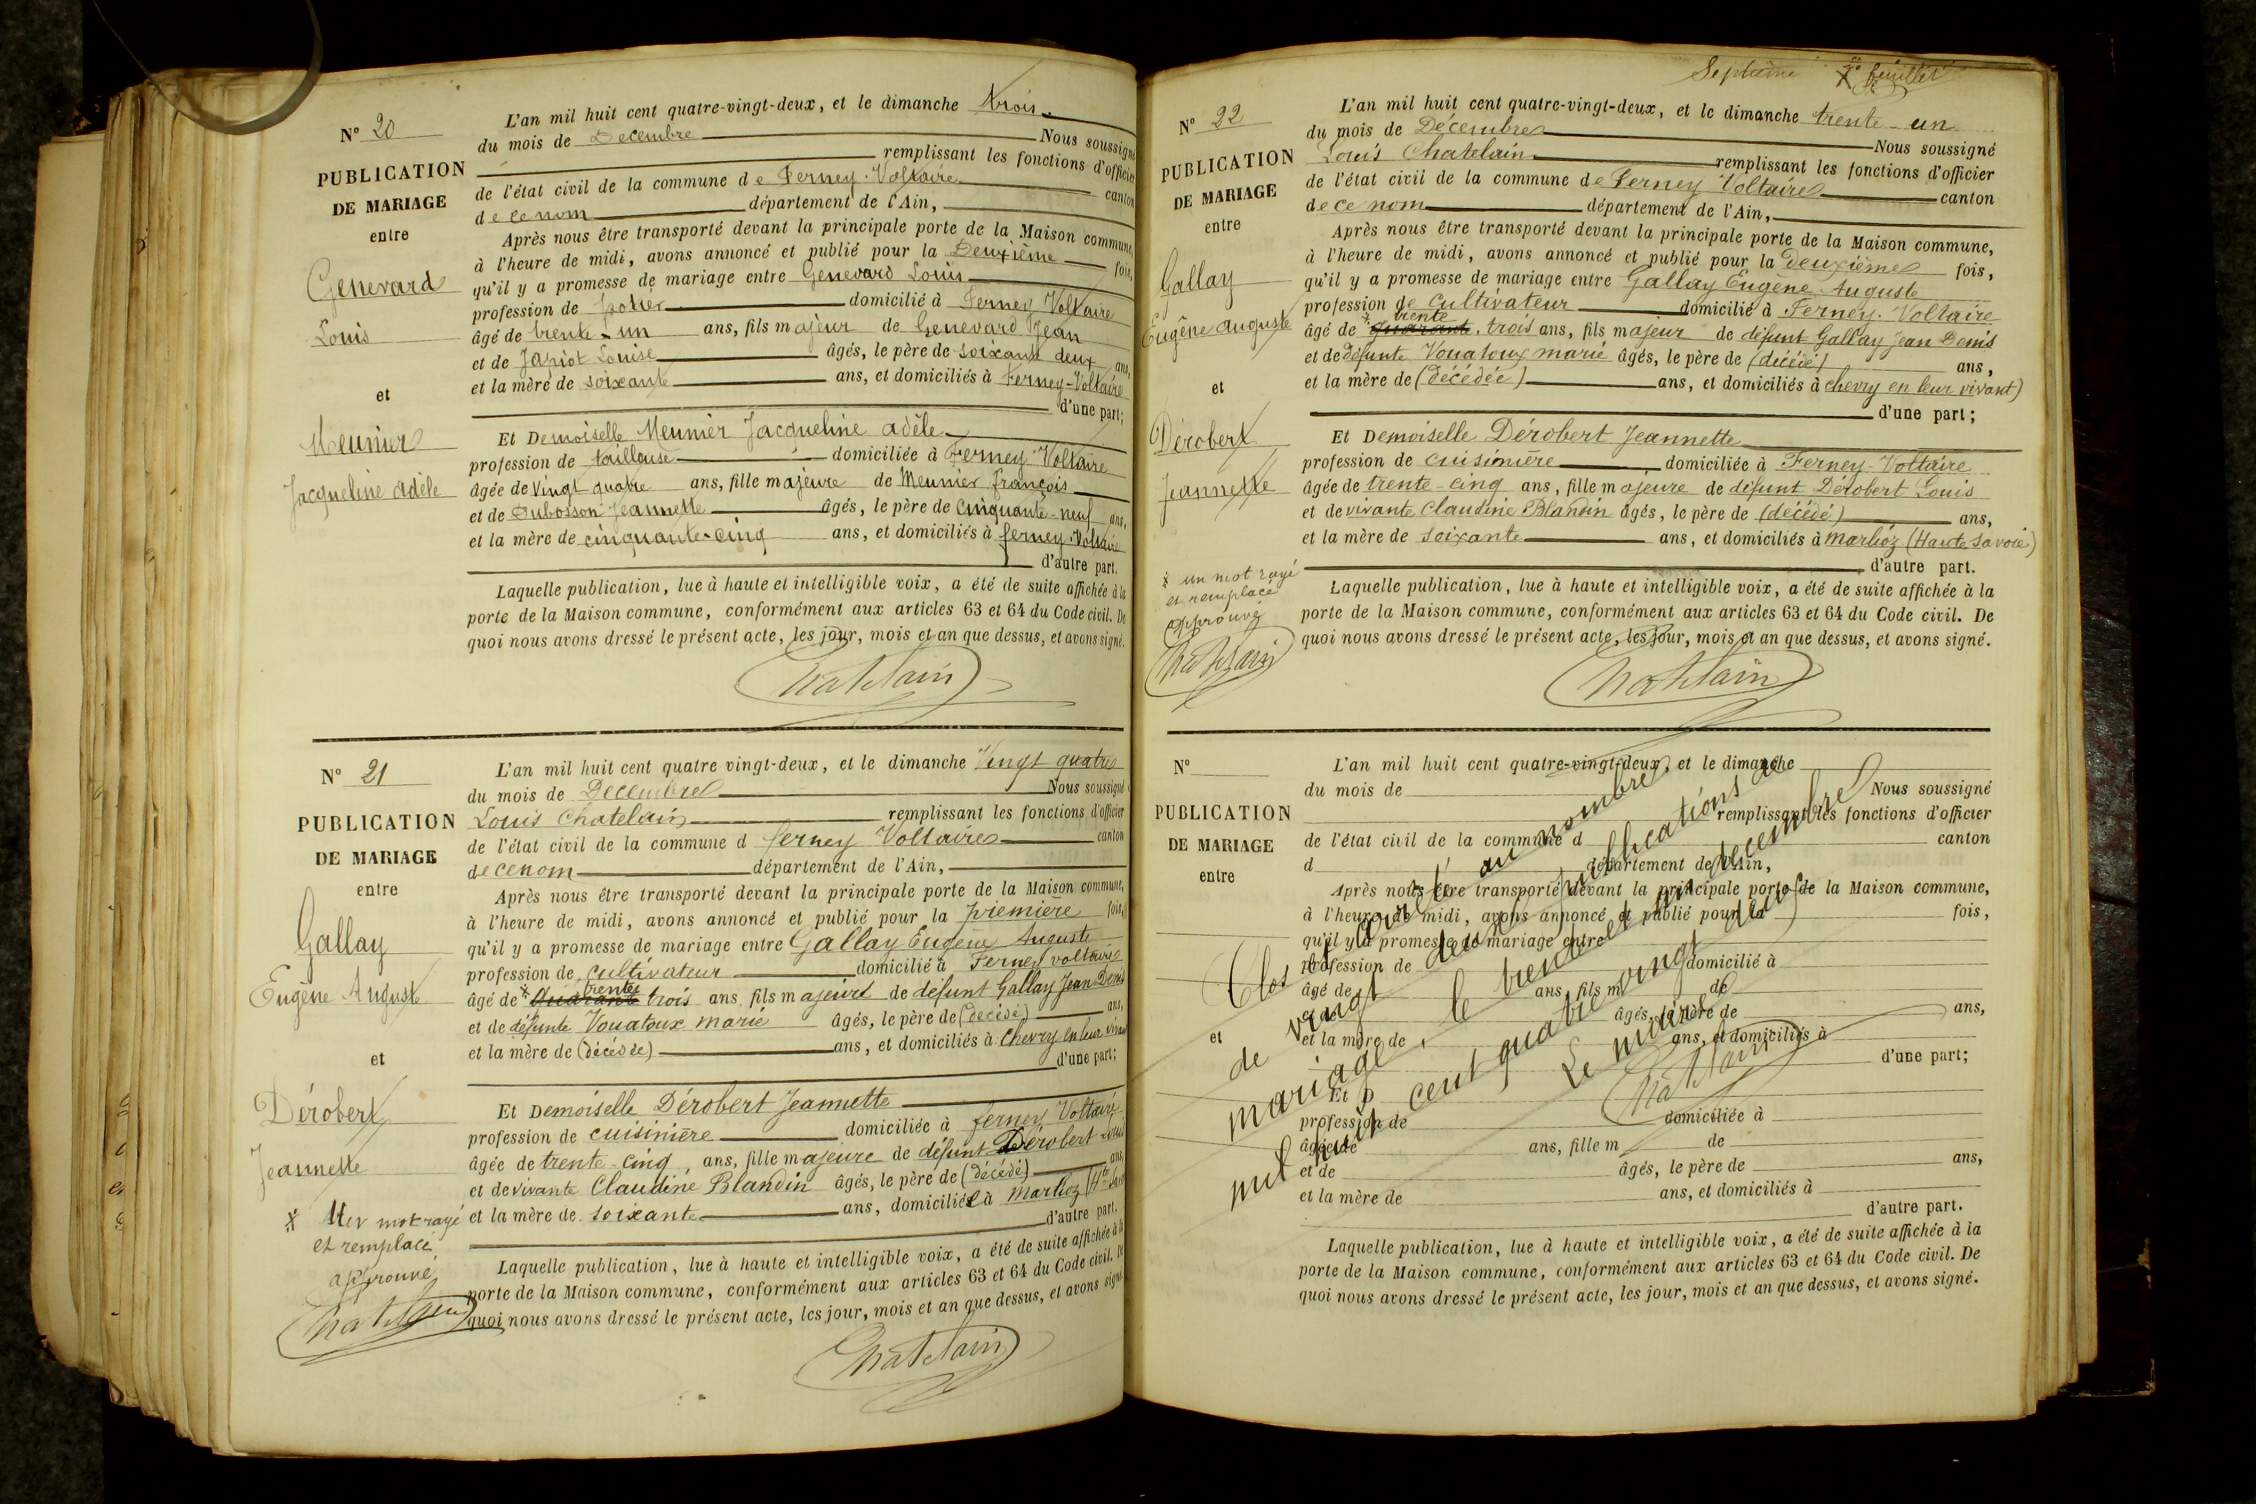 N° 20
PUBLICATION
DE MARIAGE
entre
Genevard
Louis
et
Meunier
Jacqueline Adèle
L'an mil huit cent quatre-vingt-deux, et le dimanche trois
du mois de Decembre Nous soussigné
remplissant les fonctions d'officier
de l'état civil de la commune de Ferney-Voltaire canton
de ce nom département de l'Ain,
Après nous être transporté devant la principale porte de la Maison commune,
à l'heure de midi, avons annoncé et publié pour la Deuxième fois,
qu'il y a promesse de mariage entre Genevard Louis
profession de potier domicilié à Ferney Voltaire
âgé de trente-un ans, fils majeur de Genevard Jean
et de Japiot Louise âgés, le père de soixante deux ans,
et la mère de soixante ans, et domiciliés à Ferney-Voltaire
d'une part;
Et Demoiselle Meunier Jacqueline adèle
profession de tailleuse domiciliée à Ferney Voltaire
âgée de vingt quatre ans, fille majeure de Meunier françois
et de Dubosson Jeannette âgés, le père de cinquante-neuf ans,
et la mère de cinquante-cinq ans, et domiciliés à ferney-Voltaire
d'autre part.
Laquelle publication, lue à haute et intelligible voix, a été de suite affichée à la
porte de la Maison commune, conformément aux articles 63 et 64 du Code civil. De
quoi nous avons dressé le présent acte, les jour, mois et an que dessus, et avons signé.
Chatelain
N° 21
PUBLICATION
DE MARIAGE
entre
Gallay
Eugène Auguste
et
Dérobert
Jeannette
x Un mot rayé
et remplacé
approuvé
Chatelain
L'an mil huit cent quatre vingt-deux, et le dimanche Vingt quatre
du mois de Decembre Nous soussigné
Louis Chatelain remplissant les fonctions d'officier
de l'état civil de la commune d ferney Voltaire canton
de ce nom département de l'Ain,
Après nous être transporté devant la principale porte de la Maison commune,
à l'heure de midi, avons annoncé et publié pour la première fois,
qu'il y a promesse de mariage entre Gallay Eugène Auguste
profession de cultivateur domicilié à Ferney voltaire
trente
âgé de x Quarante trois ans, fils majeur de défunt Gallay Jean Denis
et de défunte Vouatoux marie âgés, le père de (décédé) ans,
et la mère de (décédée) ans, et domiciliés à Chevry en leur vivant
d'une part;
Et Demoiselle Dérobert Jeannette
profession de cuisinière domiciliée à ferney Voltaire
âgée de trente-cinq, ans, fille majeure de défunt Dérobert Louis
et de vivante Claudine Blandin âgés, le père de (décédé) ans,
et la mère de soixante ans, domiciliée à Marlioz (Hte Savoie
d'autre part.
Laquelle publication, lue à haute et intelligible voix, a été de suite affichée à la
porte de la Maison commune, conformément aux articles 63 et 64 du Code civil. De
quoi nous avons dressé le présent acte, les jour, mois et an que dessus, et avons signé
Chatelain
Septième feuillet
N° 22
PUBLICATION
DE MARIAGE
entre
Gallay
Eugène Auguste
et
Dérobert
Jeannette
x un mot rayé
et remplacé
approuvé
Chatelain
L'an mil huit cent quatre-vingt-deux, et le dimanche trente-un
du mois de Décembre Nous soussigné
Louis Chatelain remplissant les fonctions d'officier
de l'état civil de la commune de Ferney Voltaire canton
de ce nom département de l'Ain,
Après nous être transporté devant la principale porte de la Maison commune,
à l'heure de midi, avons annoncé et publié pour la deuxième fois,
qu'il y a promesse de mariage entre Gallay Eugène Auguste
profession de cultivateur domicilié à Ferney-Voltaire
trente
âgé de x quarante, trois ans, fils majeur de défunt Gallay Jean Denis
et de défunte Vouatoux marie âgés, le père de (décédé) ans,
et la mère de (décédée) ans, et domiciliés à chevry en leur vivant)
d'une part;
Et Demoiselle Dérobert Jeannette
profession de cuisinière domiciliée à Ferney-Voltaire
âgée de trente-cinq ans, fille majeure de défunt Dérobert Louis
et de vivante Claudine Blandin âgés, le père de (décédé) ans,
et la mère de soixante ans, et domiciliés à Marlioz (Haute Savoie)
d'autre part.
Laquelle publication, lue à haute et intelligible voix, a été de suite affichée à la
porte de la Maison commune, conformément aux articles 63 et 64 du Code civil. De
quoi nous avons dressé le présent acte, les jour, mois et an que dessus, et avons signé.
Chatelain
N°
PUBLICATION
DE MARIAGE
entre
et
L'an mil huit cent quatre-vingt-deux, et le dimanche
du mois de Nous soussigné
remplissant les fonctions d'officier
de l'état civil de la commune d canton
d département de l'Ain,
Après nous être transporté devant la principale porte de la Maison commune,
à l'heure de midi, avons annoncé et publié pour la fois,
qu'il y a promesse de mariage entre
profession de domicilié à
âgé de ans, fils m de
et de âgés, le père de ans,
et la mère de ans, et domiciliés à
d'une part;
Et D
profession de domiciliée à
âgée de ans, fille m de
et de âgés, le père de ans,
et la mère de ans, et domiciliés à
d'autre part.
Laquelle publication, lue à haute et intelligible voix, a été de suite affichée à la
porte de la Maison commune, conformément aux articles 63 et 64 du Code civil. De
quoi nous avons dressé le présent acte, les jour, mois et an que dessus, et avons signé.
Clos et arrêté au nombre
de vingt deux publications de
mariage, le trente et un decembre
mil huit cent quatre vingt deux
Le maire
Chatelain